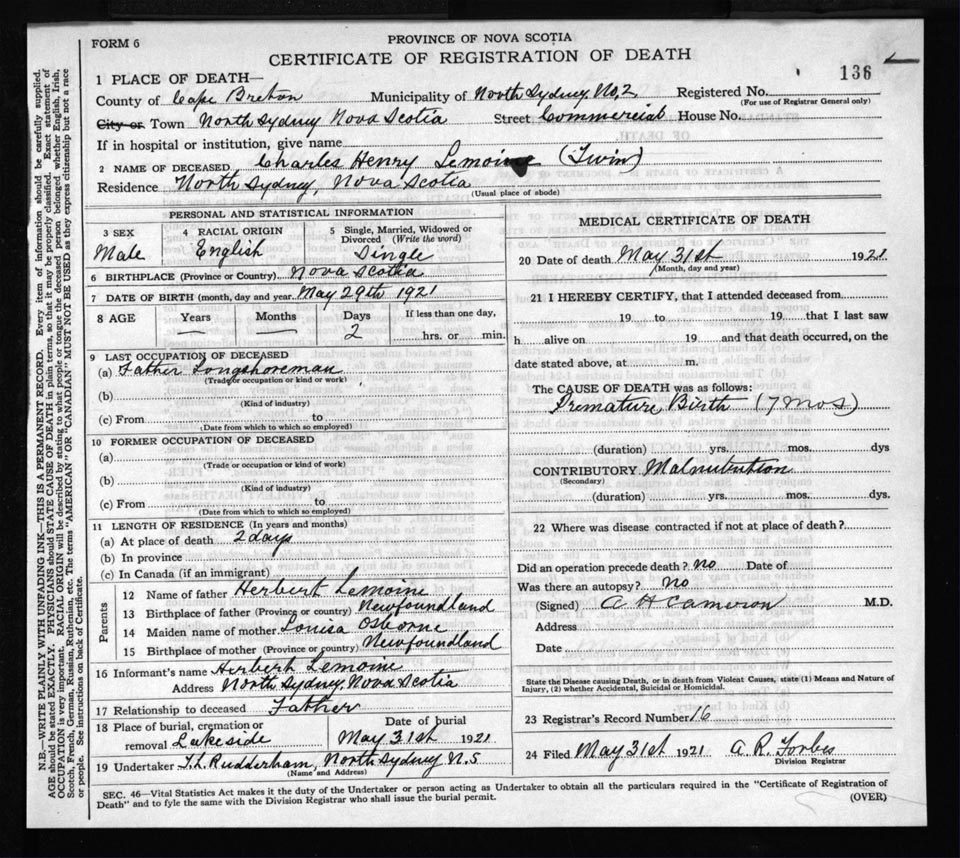 FORM 6
PROVINCE OF NOVA SCOTIA
CERTIFICATE OF REGISTRATION OF DEATH
136
1 PLACE OF DEATH—
County of Cape Breton Municipality of North Sydney No, 2 Registered No.
(For use of Registrar General only)
City or Town North Sydney Nova Scotia Street Commercial House No.
If in hospital or institution, give name
2 NAME OF DECEASED Charles Henry Lemoine (Twin)
Residence North Sydney, Nova Scotia
(Usual place of abode)
PERSONAL AND STATISTICAL INFORMATION
3 SEX 4 RACIAL ORIGIN 5 Single, Married, Widowed or Divorced (Write the word)
Male English Single
6 BIRTHPLACE (Province or Country) Nova Scotia
7 DATE OF BIRTH (month, day and year) May 29th 1921
8 AGE Years Months Days If less than one day,
— — 2 hrs. or min.
9 LAST OCCUPATION OF DECEASED
(a) Father Longshoreman
(Trade or occupation or kind or work)
(b)
(Kind of industry)
(c) From to
(Date from which to which so employed)
10 FORMER OCCUPATION OF DECEASED
(a)
(Trade or occupation or kind of work)
(b)
(Kind of industry)
(c) From to
(Date from which to which so employed)
11 LENGTH OF RESIDENCE (In years and months)
(a) At place of death 2 days
(b) In province
(c) In Canada (if an immigrant)
Parents
12 Name of father Herbert Lemoine
13 Birthplace of father (Province or country) Newfoundland
14 Maiden name of mother Louisa Osborne
15 Birthplace of mother (Province or country) Newfoundland
16 Informant's name Herbert Lemoine
Address North Sydney, Nova Scotia
17 Relationship to deceased Father
18 Place of burial, cremation or removal Lakeside
Date of burial May 31st 1921
19 Undertaker T. L. Rudderham, North Sydney N.S
(Name and Address)
MEDICAL CERTIFICATE OF DEATH
20 Date of death May 31st 1921
(Month, day and year)
21 I HEREBY CERTIFY, that I attended deceased from
19 to 19 that I last saw
h alive on 19 and that death occurred, on the
date stated above, at m.
The CAUSE OF DEATH was as follows:
Premature Birth (7 mos)
(duration) yrs. mos. dys
CONTRIBUTORY Malnutrition
(Secondary)
(duration) yrs. mos. dys.
22 Where was disease contracted if not at place of death?
Did an operation precede death? no Date of
Was there an autopsy? no
(Signed) A H Cameron M.D.
Address
Date
State the Disease causing Death, or in death from Violent Causes, state (1) Means and Nature of
Injury, (2) whether Accidental, Suicidal or Homicidal.
23 Registrar's Record Number 16
24 Filed May 31st 1921 A. R. Forbes
Division Registrar
SEC. 46—Vital Statistics Act makes it the duty of the Undertaker or person acting as Undertaker to obtain all the particulars required in the "Certificate of Registration of
Death" and to fyle the same with the Division Registrar who shall issue the burial permit.
(OVER)
N.B.—WRITE PLAINLY WITH UNFADING INK—THIS IS A PERMANENT RECORD. Every item of information should be carefully supplied.
AGE should be stated EXACTLY. PHYSICIANS should STATE CAUSE OF DEATH in plain terms, so that it may be properly classified. Exact statement of
OCCUPATION is very important. RACIAL ORIGIN will be described by stating to what people or tongue the deceased person belonged whether English, Irish,
Scotch, French, German, Russian, Ruthenian, etc. The terms "AMERICAN" OR "CANADIAN" MUST NOT BE USED as they express citizenship but not a race
or people. See instructions on back of Certificate.